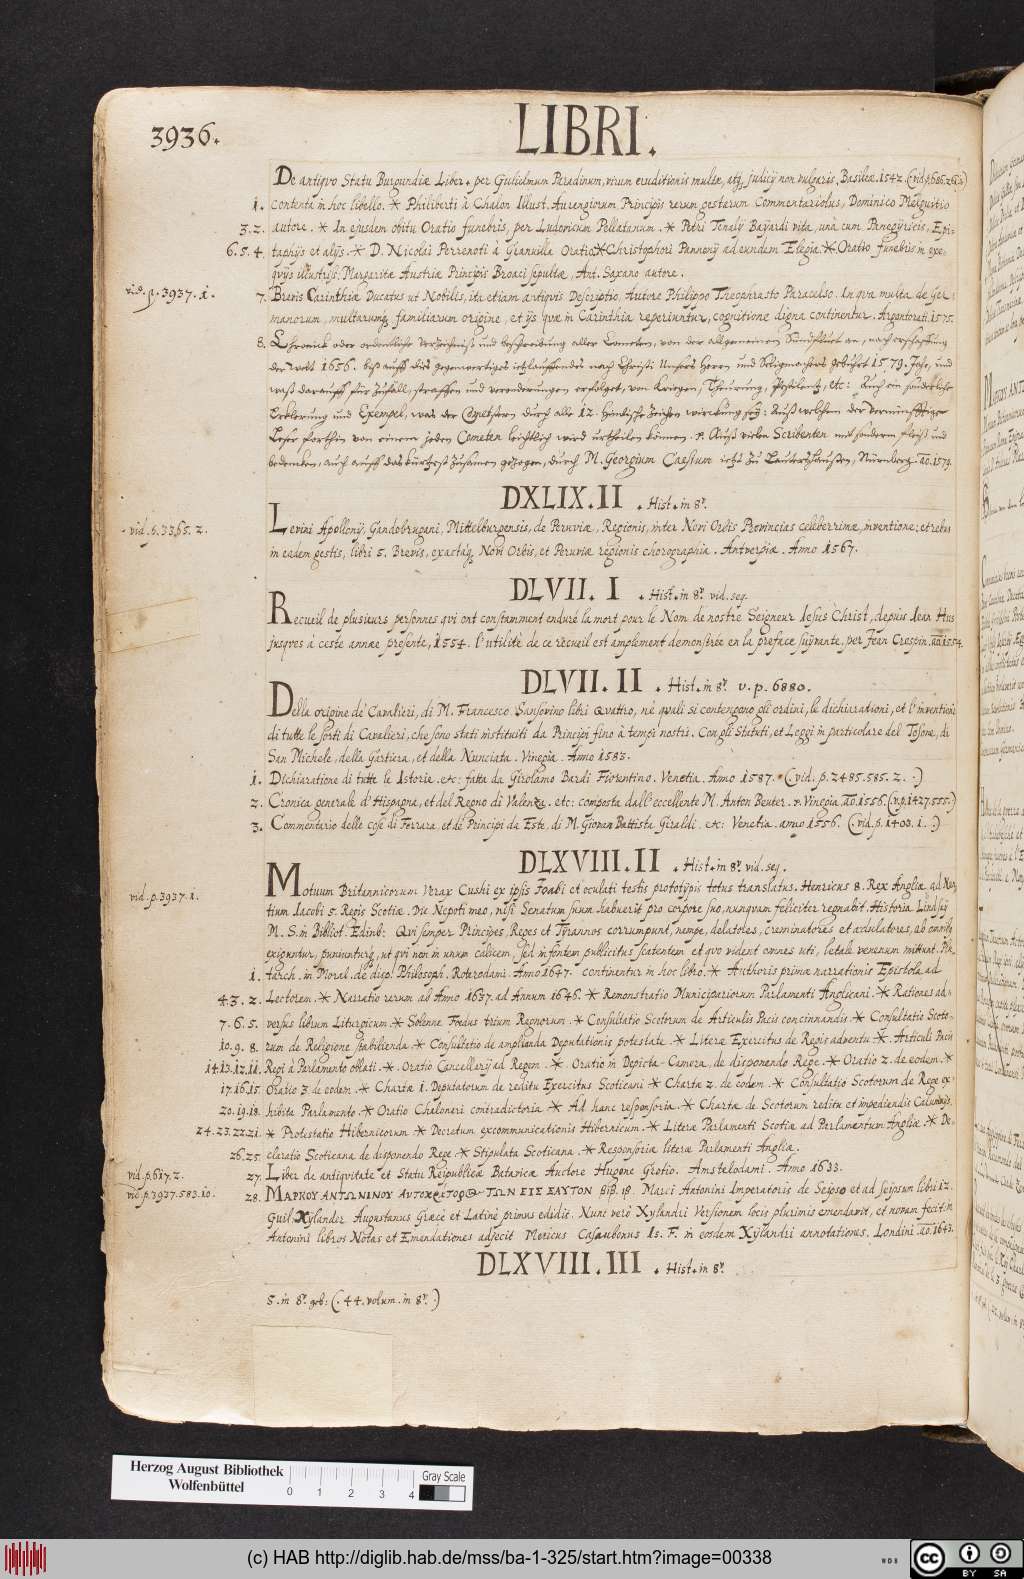 3936.
LIBRI.
De antiquo Statu Burgundiæ Liber. per Gulielmum Paradinum, virum eruditionis multæ, atq; judicij non vulgaris. Basileæ. 1542. (vid. p.
1. contenta in hoc libello. * Philiberti à Chalon Illust. Aurengiorum Principis rerum gestarum Commentariolus, Dominico Melguitio
3. 2. autore. * In ejusdem obitu Oratio funebris, per Ludovicum Pellatanum. * Petri Terralij Bayardi vita, unà cum Panegyricis, Epi-
6. 5. 4. taphijs et alijs. * D. Nicolai Perrenoti à Granvilla Oratio * Christophori Pannonij ad eundem Elegia. * Oratio funebris in exe-
quijs illustriss. Margaritæ Austriæ Principis Broaci sepultæ, Ant. Saxano autore.
vid. p. 3937. 1.
7. Brevis Carinthiæ Ducatus ut Nobilis, ita etiam antiquis Descriptio, Autore Philippo Theophrasto Paracelso. In qua multa de Ger-
manorum, multarumq; familiarum origine, et ijs quæ in Carinthia reperiuntur, cognitione digna continentur. Argentorati. 1575.
8. Chronick oder ordentliche verzeichniß und beschreibung aller Cometen, von der allgemeinen Sündfluct an, nach erschaffung
der Welt 1656. biß auff diß gegenwertiges ietzlauffendes nach Christi Unsers Herrn und Seligmachers geburt 1579. Jahr, und
waß darauff für Zufäll, straffen und veranderungen erfolget, von Kriegen, Theurung, Pestilentz, etc: Auch ein sonderliche
Erklerung und Exempel, was der Cometstern durch alle 12. himlische Zeichen wirckung sey: Auß welchem der vernunfftiger
Leser forthin von einem jeden Cometen leichtlich wird urtheilen können. Auß vielen Scribenten mit sonderm fleiß und
bedencken, auch auff das kürtzest zusamen gezogen, durch M. Georgium Caesium ietzt zu Leutershausen, Nürnberg. ao. 1579.
DXLIX. II . Hist. in 8º.
vid. p. 3365. 2.
Levini Apollonij, Gandobrugani, Mittelburgensis, de Peruviæ, Regionis, inter Novi Orbis Provincias celeberrimæ, inventione: et rebus
in eadem gestis, libri 5. Brevis, exactaq; Novi Orbis, et Peruviæ regionis chorographia. Antverpiæ. Anno 1567.
DLVII. I . Hist. in 8º. vid. seq.
Recueil de plusieurs personnes qui ont constamment enduré la mort pour le Nom de nostre Seigneur Iesus Christ, depuis Iean Hus
jusques à ceste année presente, 1554. l'utilité de ce recueil est amplement demonstrée en la preface suivante, per Jean Crespin. ao. 1554.
DLVII. II . Hist. in 8º. v. p. 6880.
Della origine de' Cavalieri, di M. Francesco Sansovino libri Quattro, nè quali si contengono gli ordini, le dichiarationi, et l'inventioni
di tutte le sorti di Cavalieri, che sono stati instituiti da Principi fino à tempi nostri. Con gli Statuti, et Leggi in particolare del Tosone, di
San Michele, della Gartiera, et della Nunciata. Vinegia. Anno 1583.
1. Dichiaratione di tutte le Istorie. etc: fatta da Girolamo Bardi Fiorentino. Venetia. Anno 1587. (vid. p. 2485. 585. 2. .)
2. Cronica generale d'Hispagna, et del Regno di Valenza. etc: composta dall' eccellente M. Anton Beuter. Vinegia. ao. 1556. (v. p. 1427. 555.)
3. Commentario delle cose di Ferrara, et de' Principi da Este, di M. Giovan Battista Giraldi. etc: Venetia. anno 1556. (. vid. p. 1403. 1. .)
DLXVIII. II . Hist. in 8º. vid. seq.
vid. p. 3937. 1.
Motuum Britannicorum Verax Cushi ex ipsis Joabi et oculati testis prototypis totus translatus. Henricus 8. Rex Angliæ ad Nun-
tium Iacobi 5. Regis Scotiæ. Dic Nepoti meo, nisi Senatum suum habuerit pro corpore suo, nunquam feliciter regnabit. Historia Lindsaij
M. S. in Bibliot. Edinb: Qui semper Principes, Reges et Tyrannos corrumpunt, nempe, delatores, criminatores et adulatores, ab omnib;
exiguntur, puniunturq; ut qui non in unum calicem, sed in fontem publicitus scatentem et quo vident omnes uti, letale venenum mittunt. Plu-
1. tarch. in Moral. de disp. Philosoph. Roterodami. Anno 1647. continentur in hoc libro. * Authoris primæ narrationis Epistola ad
4. 3. 2. Lectorem. * Narratio rerum ab Anno 1637. ad Annum 1646. * Remonstratio Municipatiorum Parlamenti Anglicani. * Rationes ad-
7. 6. 5. versus librum Liturgicum. * Solenne Foedus trium Regnorum. * Consultatio Scotorum de Articulis Pacis concinnandis. * Consultatio Scoto-
10. 9. 8. rum de Religione stabilienda. * Consultatio de amplianda Deputationis potestate. * Literæ Exercitus de Regis adventu. * Articuli Pacis
14. 13. 12. 11. Regi à Parlamento oblati. * Oratio Cancellerij ad Regem. * Oratio in Depicta-Camera, de disponendo Rege. * Oratio 2. de eodem. *
17. 16. 15. Oratio 3. de eodem. * Charta 1. Deputatorum de reditu Exercitus Scoticani * Charta 2. de eodem. * Consultatio Scotorum de Rege ex-
20. 19. 18. hibita Parlamento. * Oratio Chaloneri contradictoria. * Ad hanc responsoria. * Chartæ de Scotorum reditu et impediendis Calumnijs.
24. 23. 22. 21. * Protestatio Hibernicorum * Decretum excommunicationis Hibernicum. * Literæ Parlamenti Scotiæ ad Parlamentum Angliæ. * De-
26. 25. claratio Scoticana de disponendo Rege. * Stipulata Scoticana. * Responsoriæ literæ Parlamenti Angliæ.
vid. p. 617. 2.
27. Liber de antiquitate et Statu Reipublicæ Batavicæ Auctore Hugone Grotio. Amstelodami. Anno 1633.
vid. p. 3937. 583. 10.
28. ΜΑΡΚΟΥ ΑΝΤΩΝΙΝΟΥ ΑΥΤΟΚΡΑΤΟΡΟΣ ΤΩΝ ΕΙΣ ΕΑΥΤΟΝ Marci Antonini Imperatoris de Seipso et ad seipsum libri 12.
Guil. Xylander Augustanus Græcè et Latinè primus edidit. Nunc verò Xylandri Versionem locis plurimis emendavit, et novam fecit: in
Antonini libros Notas et Emendationes adjecit Mericus Casaubonus Is. F. in eosdem Xylandri annotationes. Londini. ao. 1643.
DLXVIII. III . Hist. in 8º.
5. in 8º. geb: (. 44. volum. in 8º. .)
Herzog August Bibliothek
Wolfenbüttel
0 1 2 3 4
Gray Scale
(c) HAB http://diglib.hab.de/mss/ba-1-325/start.htm?image=00338
WDB
cc BY SA